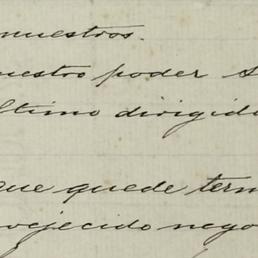 nuestros.
nuestro poder s
ltimo dirigid
que quede term
vejecido nego